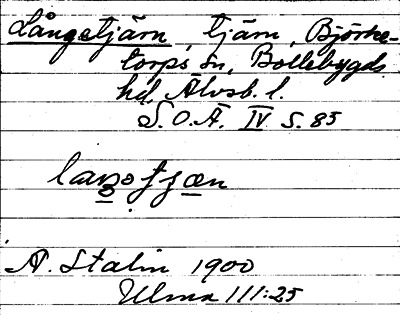 Långetjärn, tjärn, Björke-
torps sn, Bollebygds
hd, Älvsb. l.
S.O.Ä. IV S. 85
A. Stalin 1900
Ulma 111:25